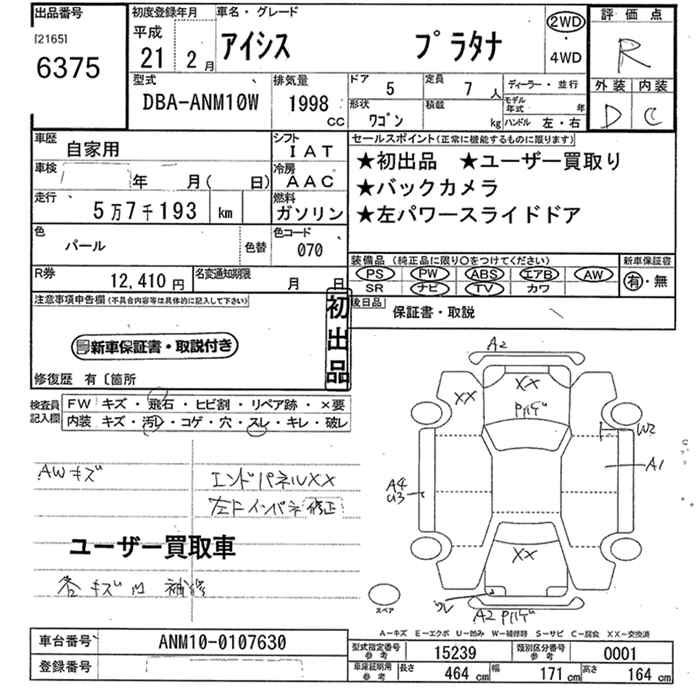 出品番号
[2165]
6375
初度登録年月
平成
21年 2月
車名・グレード
アイシス プラタナ
2WD
4WD
評価点
R
外装 内装
D C
型式
DBA-ANM10W
排気量
1998 cc
ドア 5
定員 7人
形状 ワゴン
積載 kg
ディーラー・並行
モデル年式 年
ハンドル 左・右
車歴
自家用
シフト
IAT
車検
年 月( 日)
冷房
AAC
走行
5万7千193 km
燃料
ガソリン
色
パール
色替
色コード
070
R券
12,410円
名変通知期限 月 日
セールスポイント(正常に機能するものに限ります)
★初出品 ★ユーザー買取り
★バックカメラ
★左パワースライドドア
装備品 (純正品に限り○をつけてください)
PS PW ABS エアB AW
SR ナビ TV カワ
新車保証書
有・無
後日品
保証書・取説
注意事項申告欄(不具合内容等は具体的に記入して下さい)
初出品
新車保証書・取説付き
修復歴 有〔箇所
検査員記入欄
FW キズ・飛石・ヒビ割・リペア跡・×要
内装 キズ・汚レ・コゲ・穴・スレ・キレ・破レ
AWキズ
エンドパネルXX
左Fインパネ修正
ユーザー買取車
各キズ凹 補修
A2
XX
XX
W2
A1
A4
U3
XX
A2
スペア
A-キズ E-エクボ U-凹み W-補修跡 S-サビ C-腐食 XX-交換済
車台番号
ANM10-0107630
登録番号
型式指定番号
参考
15239
類別区分番号
参考
0001
車庫証明用
参考
長さ 464cm
幅 171cm
高さ 164cm